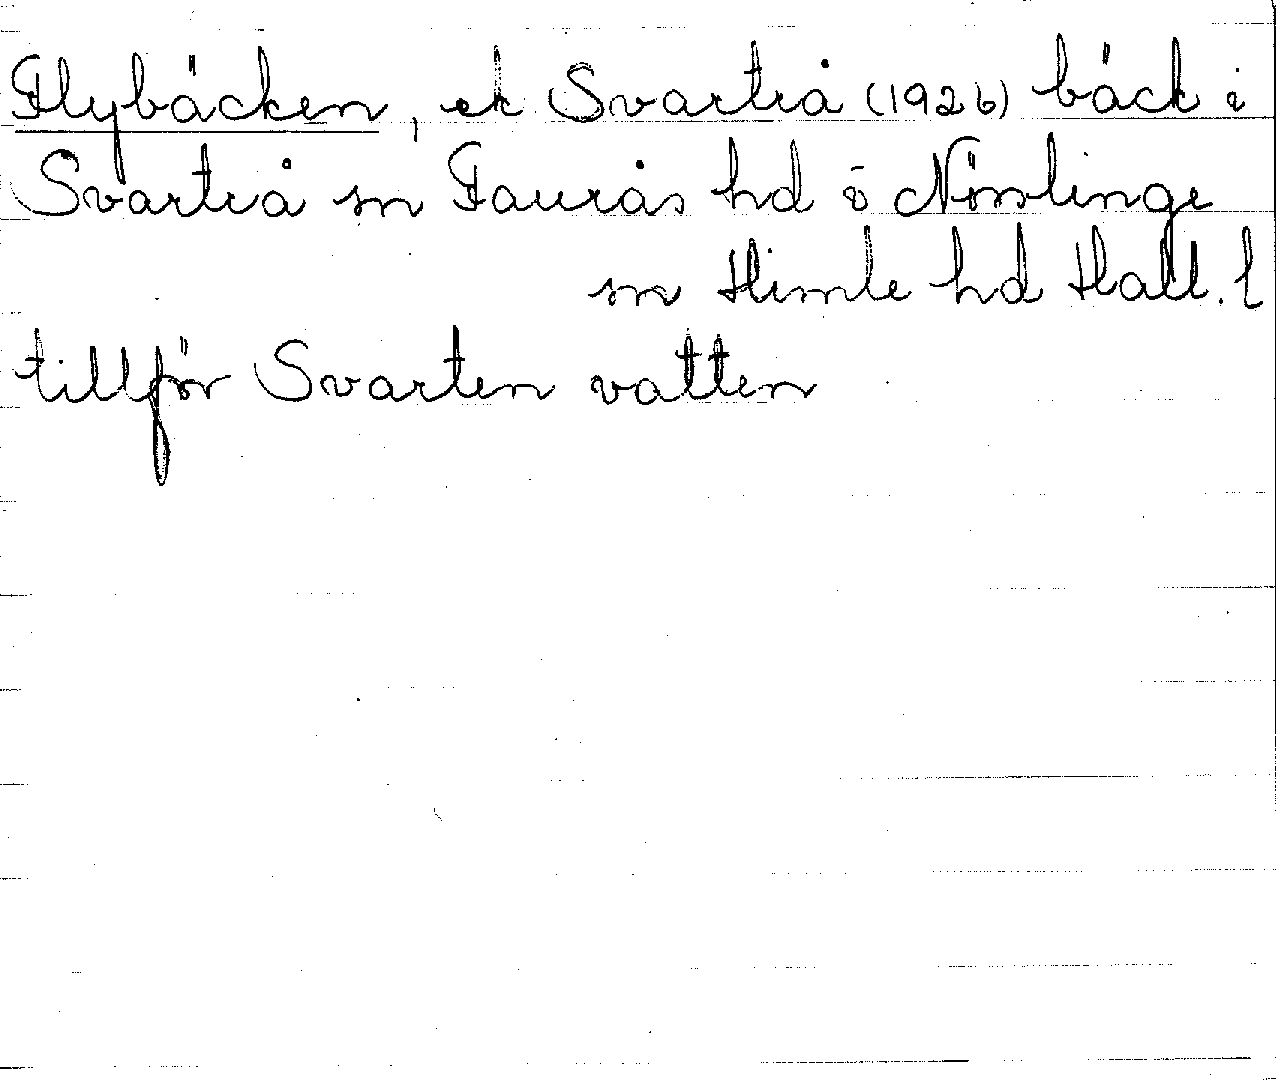 Flybäcken, ek Svartrå (1926) bäck i
Svartrå sn Faurås hd o Nösslinge
sn Himle hd Hall. l
tillför Svarten vatten